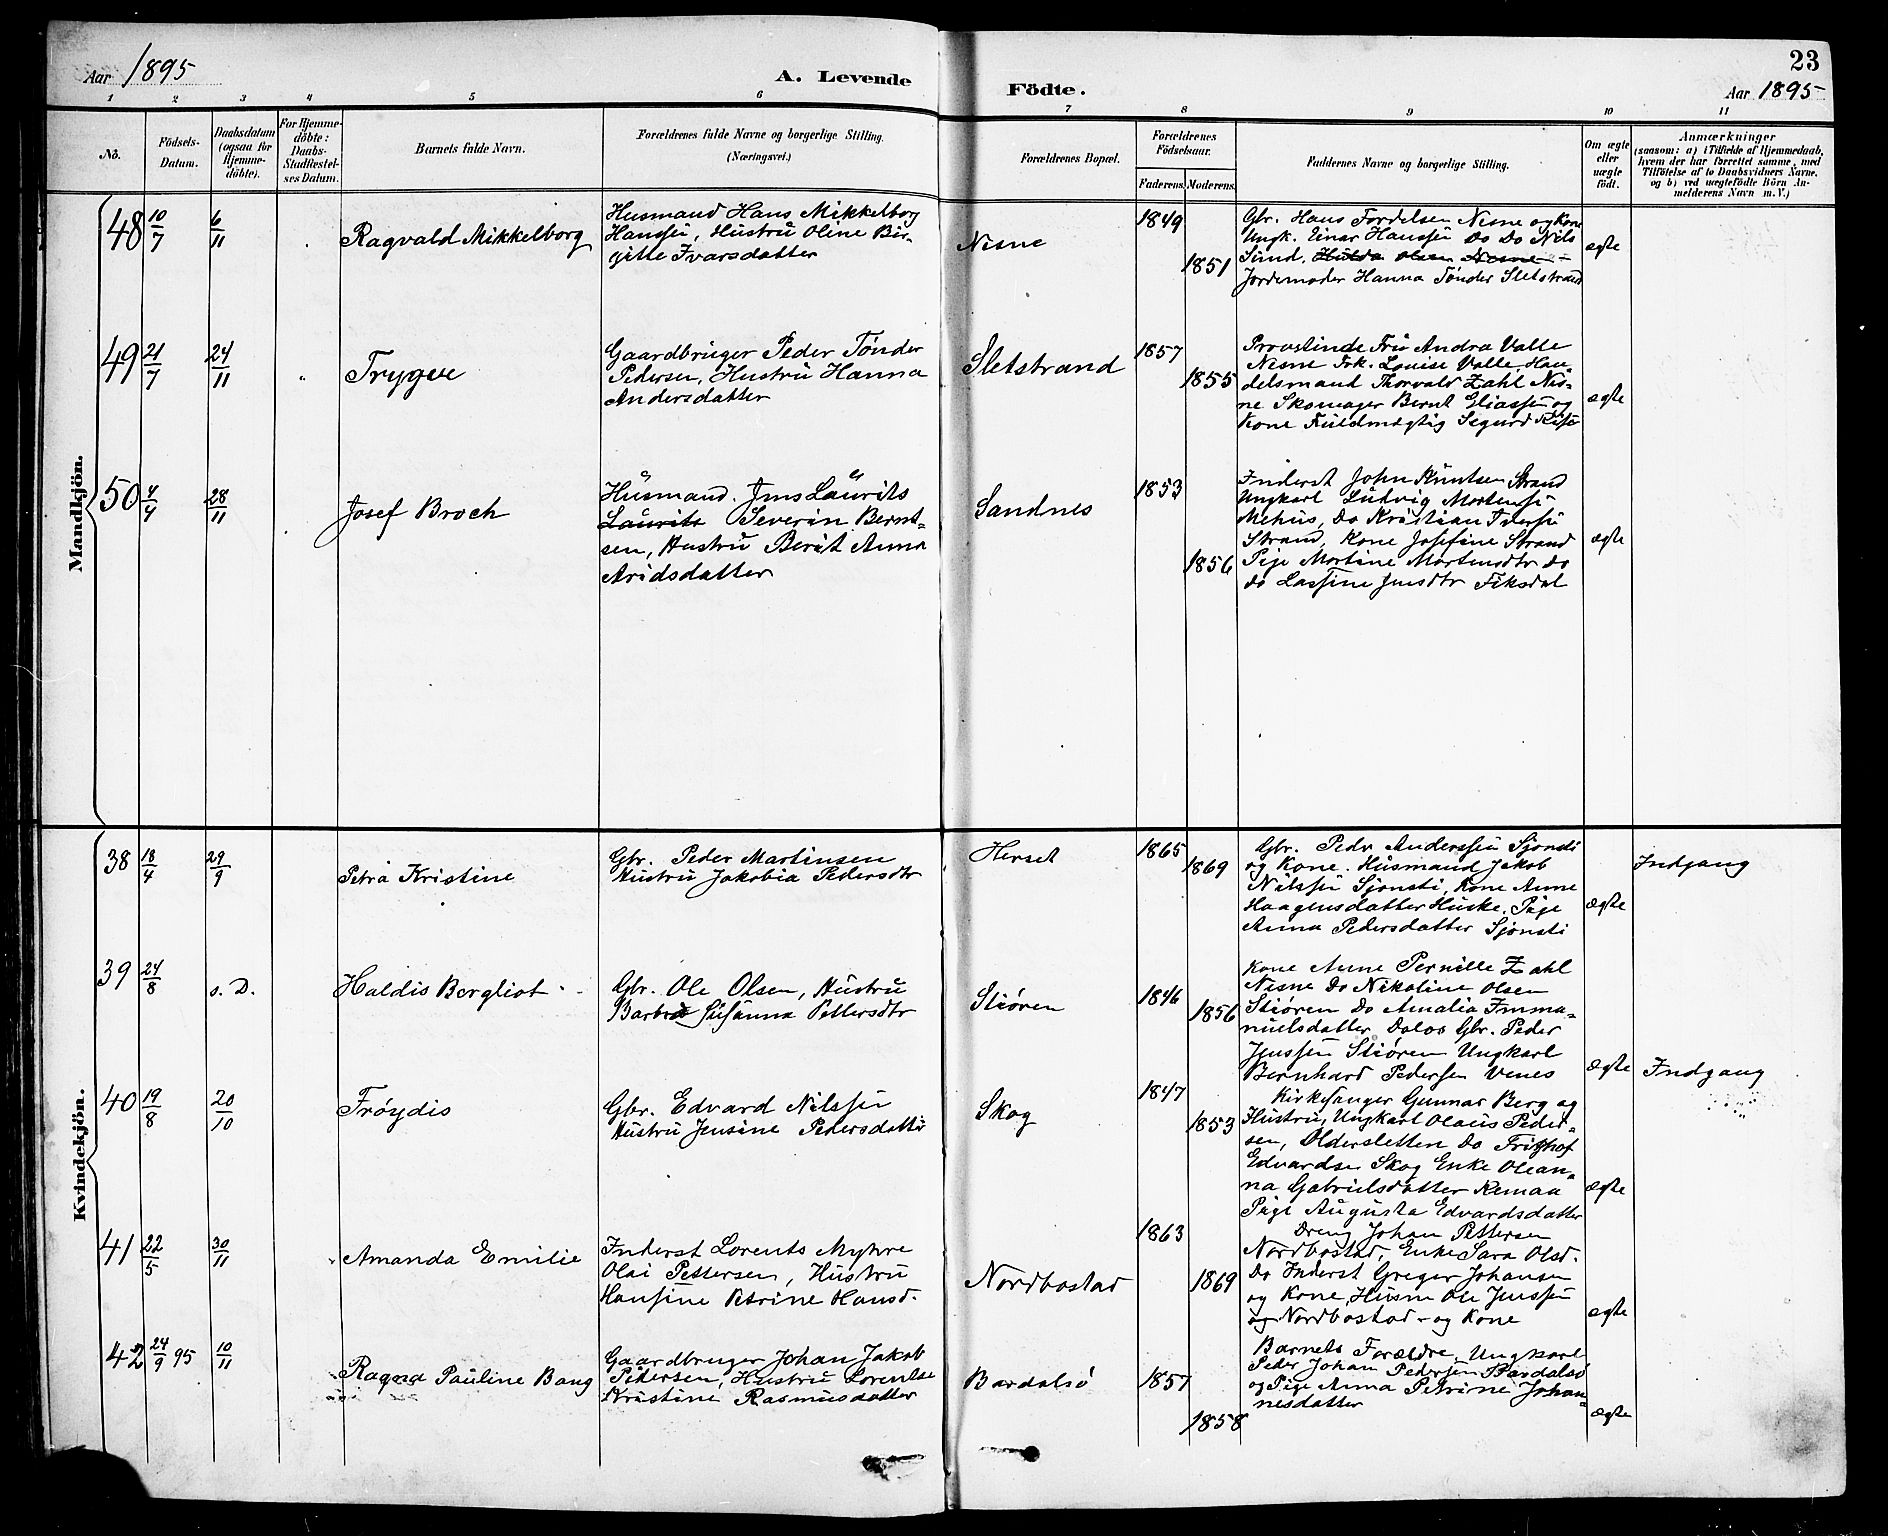 23
Aar 1895
A. Levende
Födte.
Aar 1895
1 2 3 4 5 6 7 8 9 10 11
No.
Födsels-
Datum.
Daabsdatum
(ogsaa for
Hjemme-
döbte).
For Hjemme-
döbte:
Daabs-
Stadfæstel-
ses Datum.
Barnets fulde Navn.
Forældrenes fulde Navne og borgerlige Stilling.
(Næringsvei.)
Forældrenes Bopæl.
Forældrenes
Födselsaar.
Faderens.
Moderens.
Faddernes Navne og borgerlig Stilling.
Om ægte
eller
uægte
födt.
Anmærkninger
(saasom: a) i Tilfælde af Hjemmedaab,
hvem der har forrettet samme, med
Tilföielse af to Daabsvidners Navne,
og b) ved uægtefödte Börn An-
melderens Navn m.V.)
Mandkjön.
48 10/7 6/11
Ragvald Mikkelborg
Husmand Hans Mikkelborg
Hanssen, Hustru Oline Bir-
gitte Ivarsdatter
Nesne
1849
1851
Gbr. Hans Tordelsen Nesne og Kone
Ungk. Einar Hanssen Do Do Nils
Sund, Hulda Olsen Nesne
Jordemoder Hanna Tønder Sletstrand
ægte
49 21/7 24/11
Trygve
Gaardbruger Peder Tønder
Pedersen, Hustru Hanna
Andersdatter
Sletstrand
1857
1855
Provstinde Fru Andra Valle
Nesne Frk. Louise Valle Han-
delsmand Thorvald Zahl Nes-
ne Skomager Bernt Eliassen og
Kone Fuldmægtig Sigurd
ægte
50 4/4 28/11
Josef Broch
Husmand Jens Laurits
Laurits Severin Bernt-
sen, Hustru Berit Anna
Aridsdatter
Sandnes
1853
1856
Inderst John Knutsen Strand
Ungkarl Ludvig Mortensen
Mehus, Do Kristian Iversen
Strand, Kone Josefine Strand
Pige Martine Mortensdtr Do
Do Lassine Jensdtr Fiksdal
ægte
Kvindekjön.
38 18/4 29/9
Petra Kristine
Gbr. Peder Martinsen
Hustru Jakobia Pedersdtr
Herset
1865
1869
Gbr. Pedr Anderssen Sjonsti
og Kone. Husmand Jakob
Nilssen Sjonsti, Kone Anne
Haagensdatter Huske. Pige
Anna Pedersdatter Sjonsti
ægte
Indgang
39 24/8 s. D.
Haldis Bergliot
Gbr. Ole Olsen, Hustru
Barbra Susanna Pettersdtr
Stiøren
1846
1856
Kone Anne Pernille Zahl
Nesne Do Nikoline Olsen
Stiøren Do Amalia Imma-
nuelsdatter Dalos Gbr. Peder
Jenssen Stiøren Ungkarl
Bernhard Pedersen Venes
ægte
Indgang
40 19/8 20/10
Frøydis
Gbr. Edvard Nilssen
Hustru Jensine Pedersdatter
Skog
1847
1853
Kirkesanger Gunnar Berg og
Hustru, Ungkarl Olaus Peder-
sen, Oldersletten Do Frithof
Edvardsen Skog Enke Olean-
na Gabrielsdatter Remaa
Pige Augusta Edvardsdatter
ægte
41 22/5 30/11
Amanda Emilie
Inderst Lorents Myhre
Olai Pettersen, Hustru
Hansine Petrine Hansd.
Nordbostad
1863
1869
Dreng Johan Pettersen
Nordbostad, Enke Sara Olsd.
Do Inderst Greger Johansen
og Kone, Husm Ole Jenssen
og Nordbostad - og Kone
ægte
42 24/9 95 10/11
Ragna Pauline Bang
Gaardbruger Johan Jakob
Pedersen, Hustru Lorentse
Kristine Rasmusdatter
Bardalsø
1857
1858
Barnets Forældre, Ungkarl
Peder Johan Pedersen Bardalsø
og Pige Anna Petrine Johan-
nesdatter
ægte